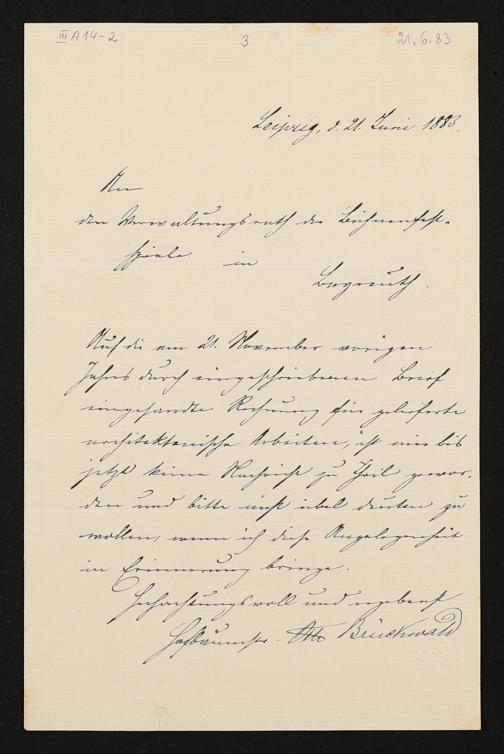 III A 14-2
3
21.6.83
Leipzig, d. 21. Juni 1883.
An
den Verwaltungsrath der Bühnenfest-
spiele in
Bayreuth.
Auf die am 21. November vorigen
Jahres durch eingeschriebenen Brief
eingesandte Rechnung für gelieferte
architektonische Arbeiten, ist mir bis
jetzt keine Nachricht zu Theil gewor-
den und bitte nicht übel deuten zu
wollen, wenn ich diese Angelegenheit
in Erinnerung bringe.
Hochachtungsvoll und ergebenst
Otto Brückwald